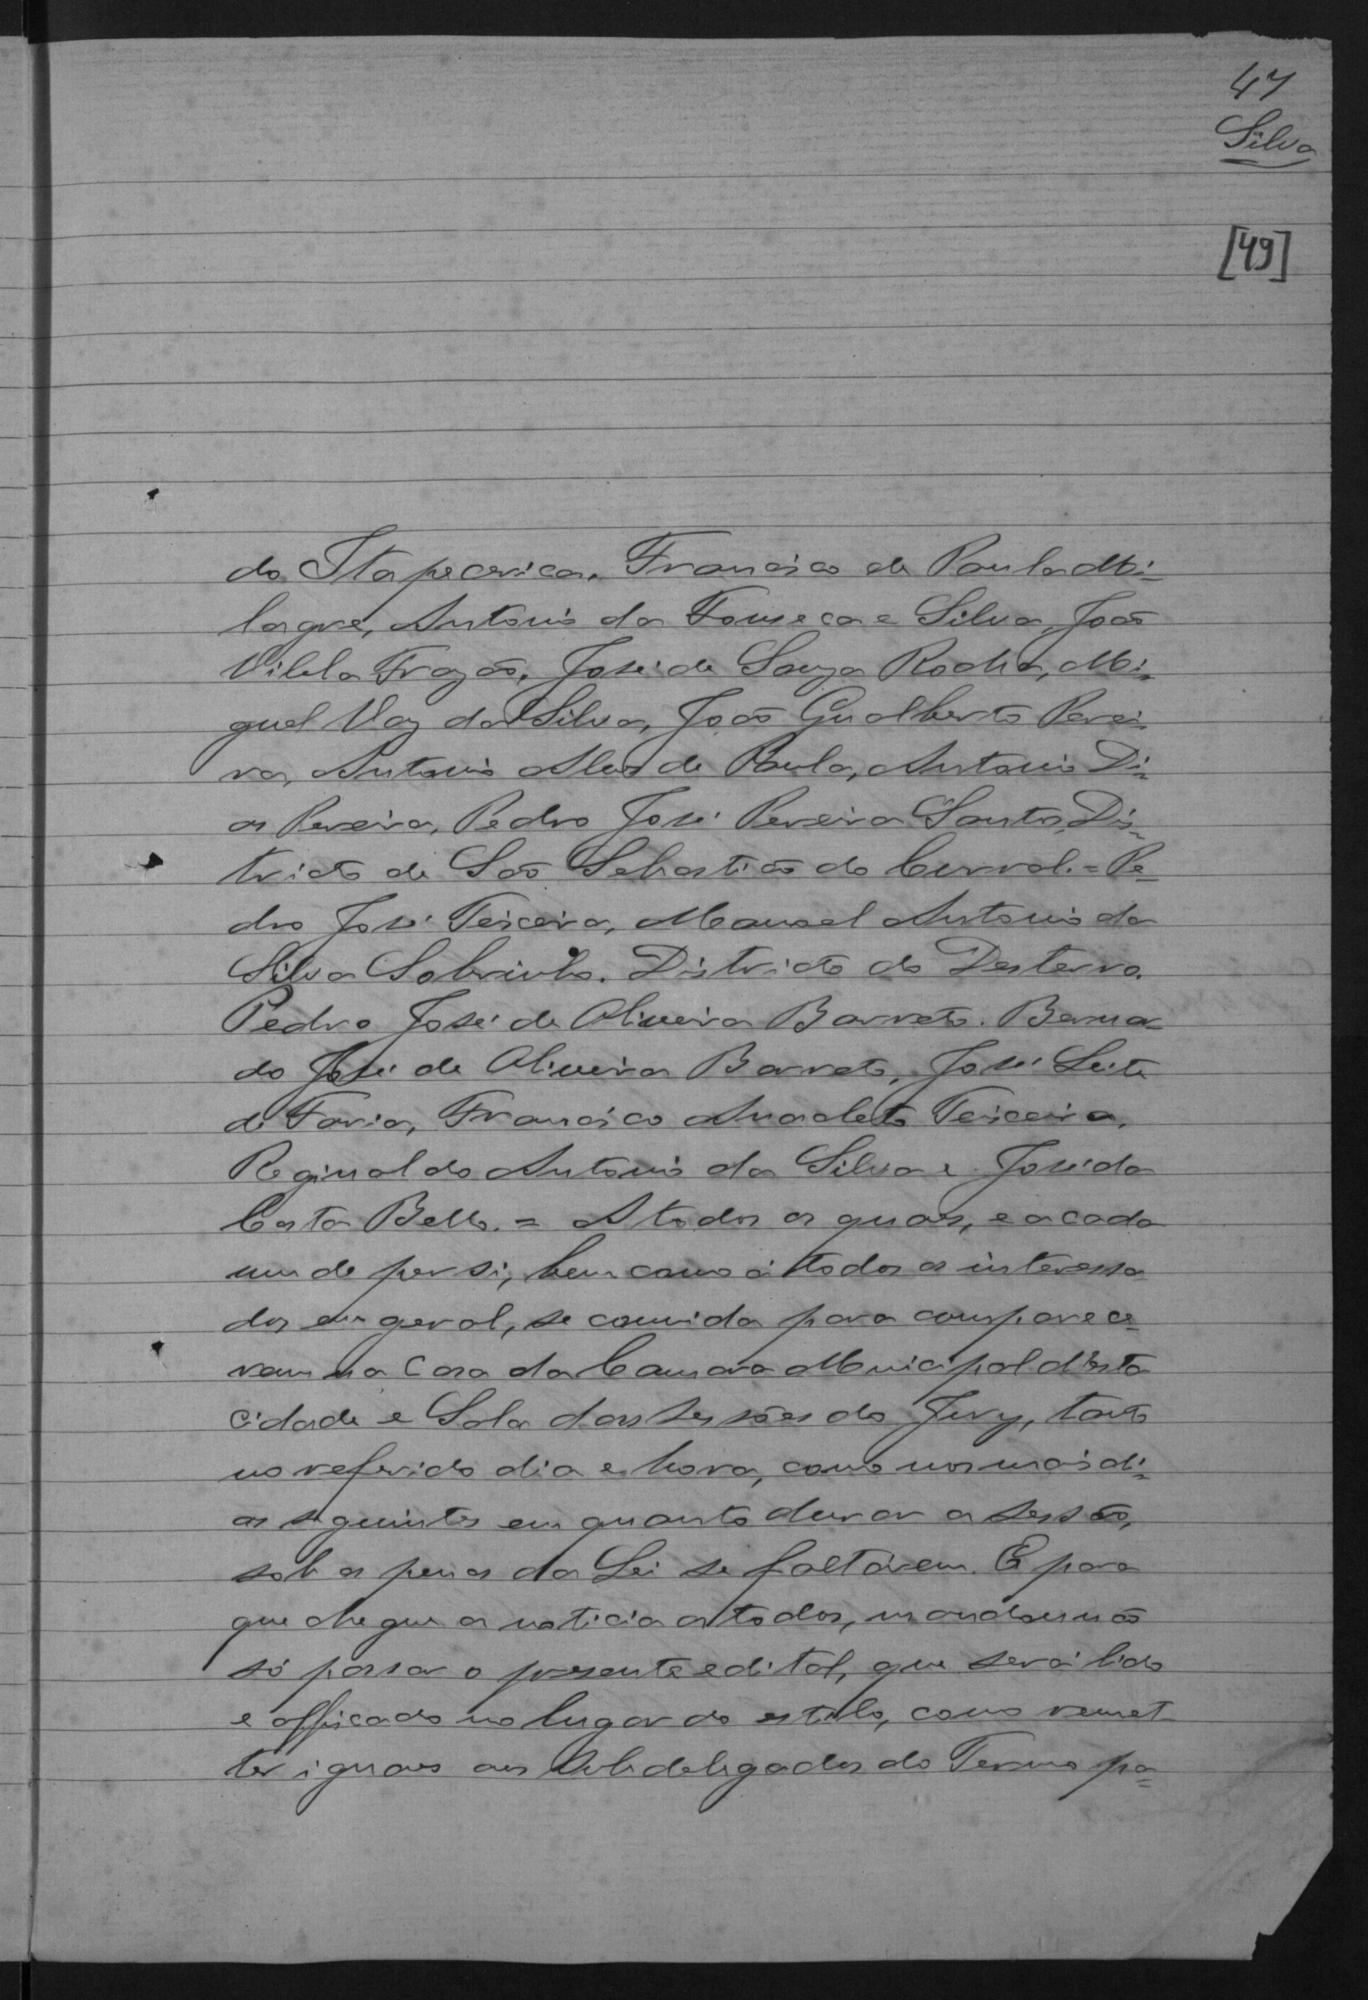 47
Silva
[49]
do Itapecerica. Francisco de Paula Mi-
lagre, Antonio da Fonseca e Silva, João
Vilela Frazão, José de Souza Rocha, Mi-
guel Vaz da Silva, João Gualberto Perei-
ra, Antonio Alves de Paula, Antonio Di-
as Pereira, Pedro José Pereira Santos, Dis-
tricto de São Sebastião do Curral. = Pe-
dro José Teixeira, Manoel Antonio da
Silva Sobrinho. Districto do Desterro.
Pedro José de Oliveira Barreto. Berna-
do José de Oliveira Barreto, José Leite
de Faria, Francisco Anacleto Teixeira,
Reginaldo Antonio da Silva e José da
Costa Bello. = A todos os quaes, e a cada
um de per si, bem como á todos os interessa
dos em geral, se convida para comparece-
rem na Casa da Camara Municipal d'esta
cidade e Sala das Sessões do Jury, tanto
no referido dia e hora, como nos mais di-
as seguintes em quanto durar a sessão,
sob as penas da Lei se faltarem. E para
que chegue a noticia a todos, mandou não
só passar o presente edital, que será lido
e affixado no lugar do estilo, como remet-
ter iguaes aos Subdelegados do Termo pa-